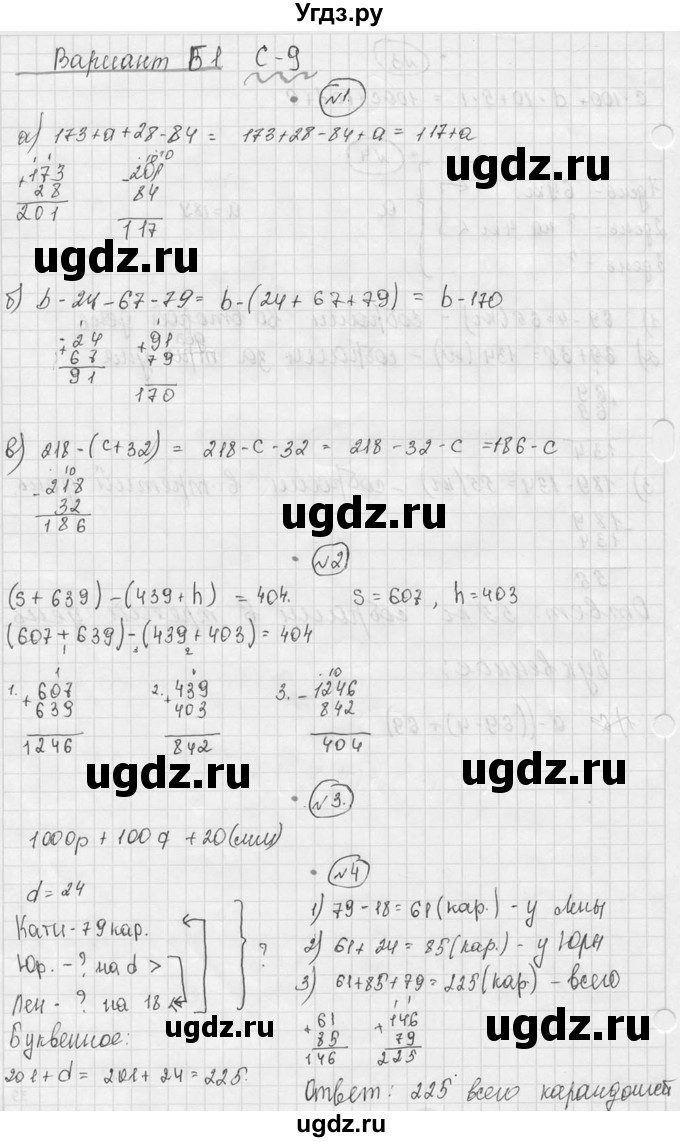 Угдз.ру
Вариант Б1 С-9
№1
а) 173+a+28-84 = 173+28-84+a = 117+a
+173
28
201
-201
84
117
ugdz.ru
ugdz.ru
б) b-24-67-79= b-(24+67+79) = b-170
+24
67
91
+91
79
170
ugdz.ru
в) 218-(c+32) = 218-c-32 = 218-32-c =186-c
-218
32
186
ugdz.ru
№2
(s+639)-(439+h) = 404. s=607, h=403
(607+639)-(439+403)=404
1. +607
639
1246
2. +439
403
842
3. -1246
842
404
ugdz.ru
ugdz.ru
№3.
1000p + 100q + 20(мм)
№4
d=24
Кати-79кар.
Юр. - ? на d >
Лен - ? на 18 <
?
Буквенное:
201+d = 201+24=225.
1) 79-18=61(кар.) - у Лены
2) 61+24=85(кар.) - у Юры
3) 61+85+79=225(кар) - всего
+61
85
146
+146
79
225
Ответ: 225 всего карандашей
ugdz.ru
ugdz.ru